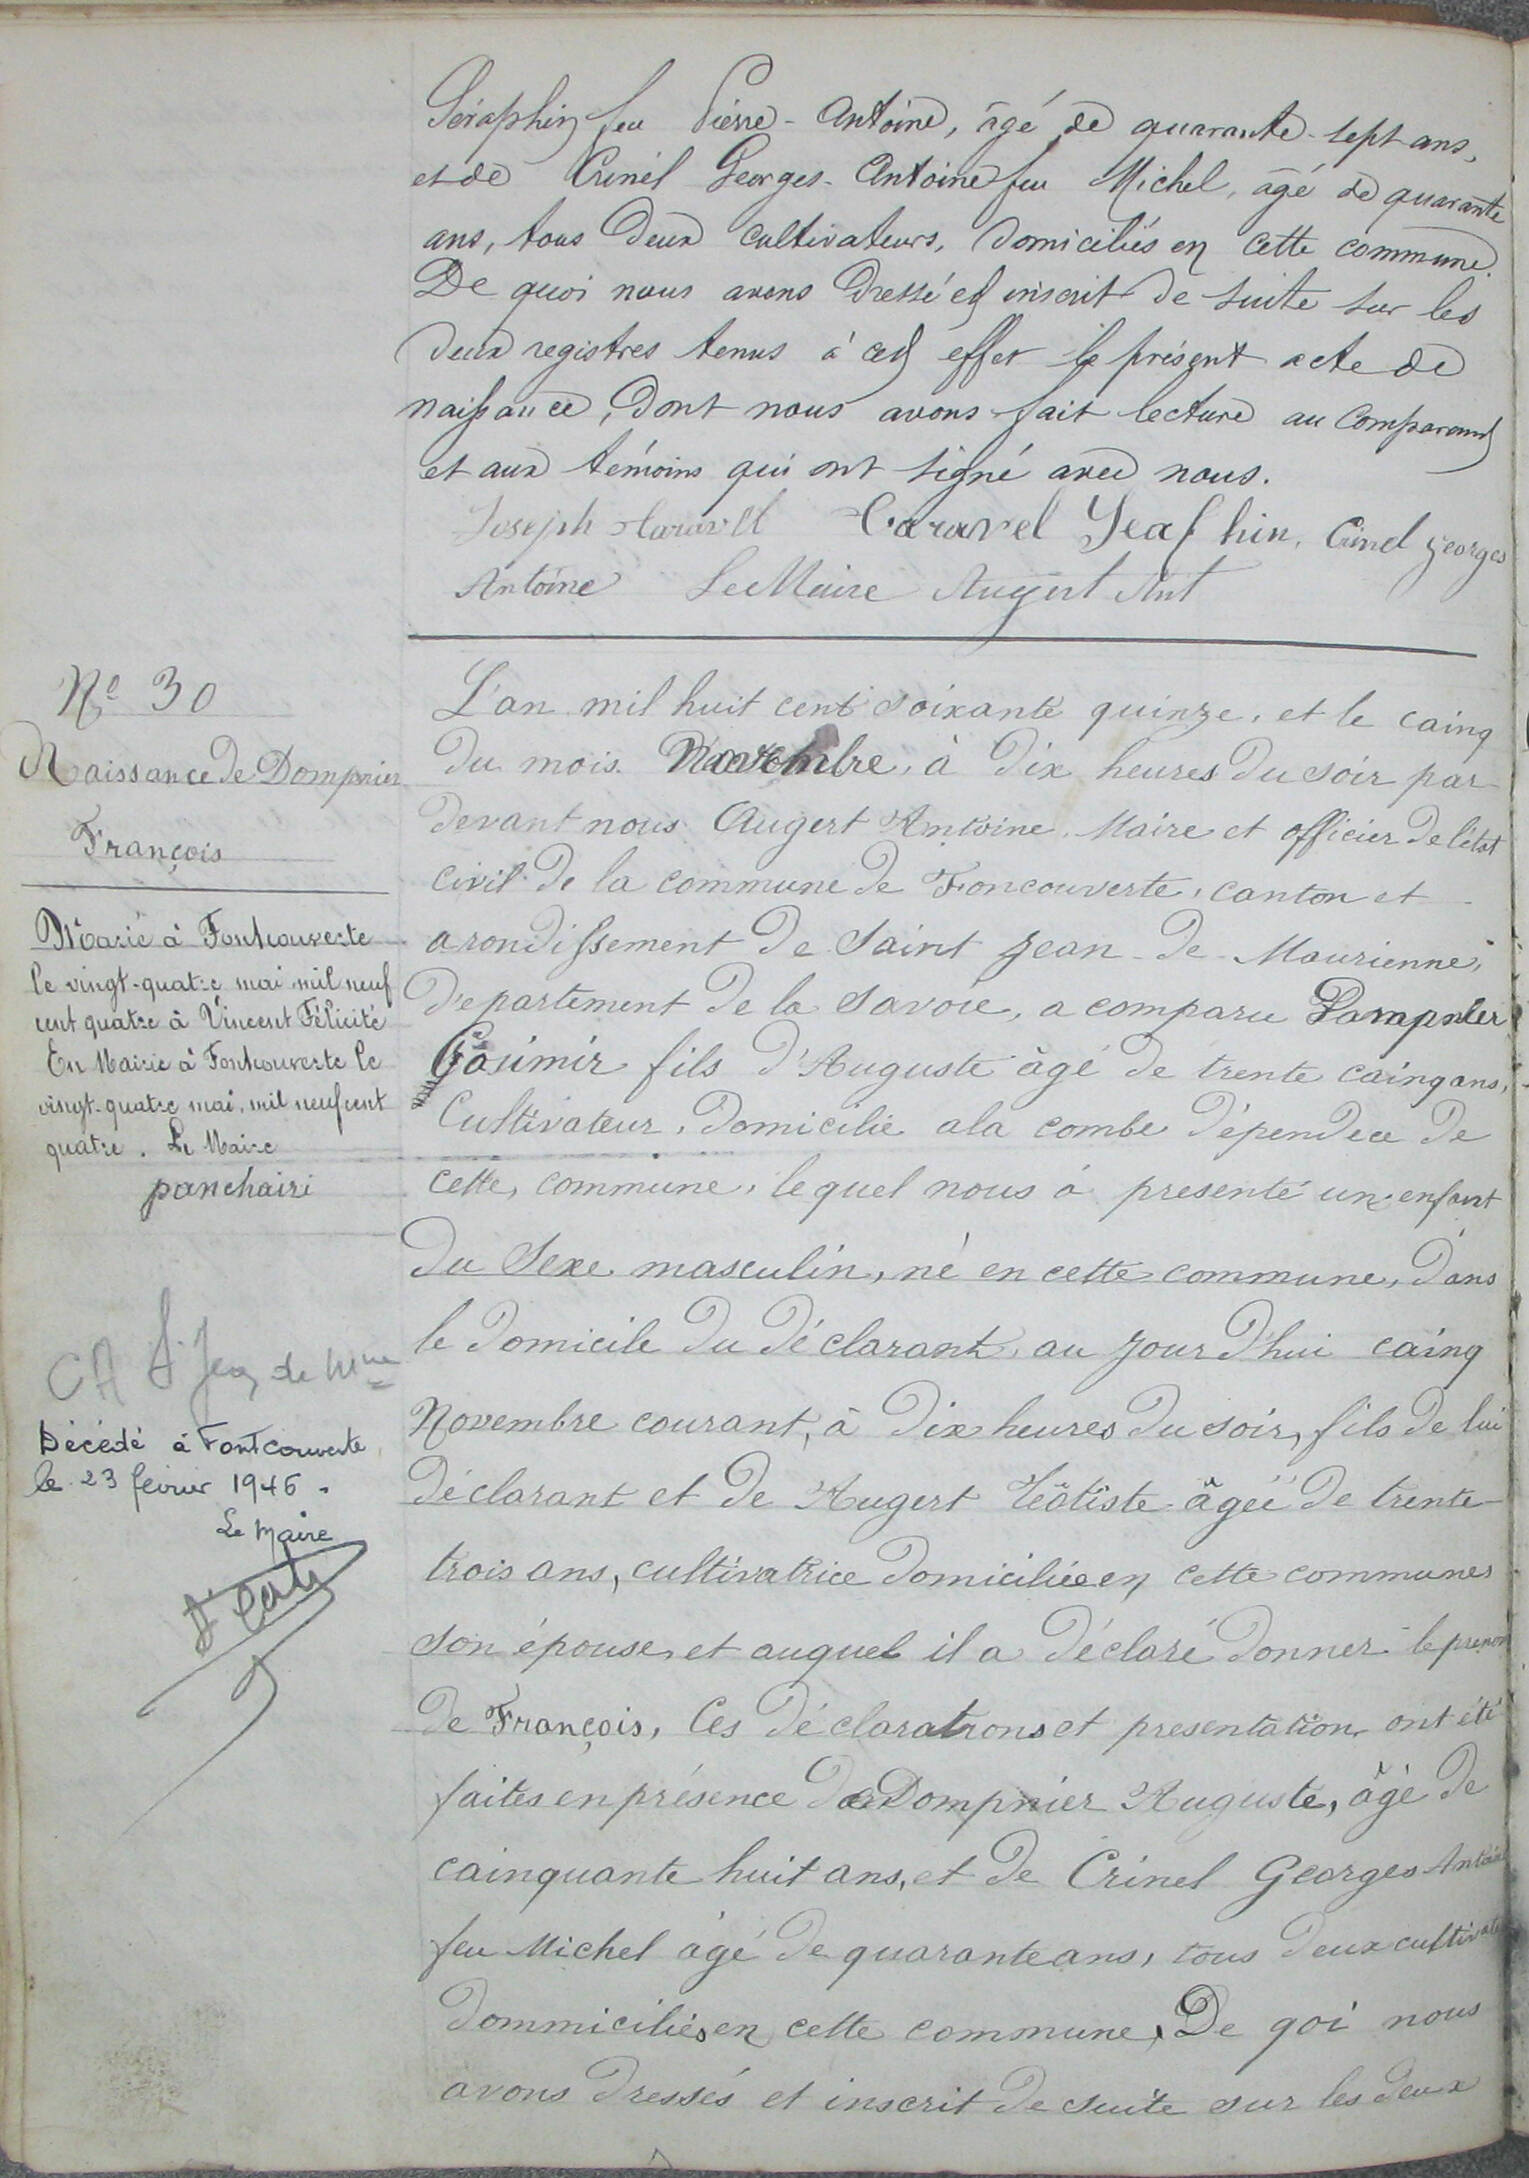 Séraphin feu Pierre-Antoine, âgé de quarante-sept ans,
et de Crinel Georges-Antoine feu Michel, âgé de quarante
ans, tous deux cultivateurs, domiciliés en cette commune.
De quoi nous avons dressé et inscrit de suite sur les
deux registres tenus à cet effet le présent acte de
naissance, dont nous avons fait lecture au comparant
et aux témoins qui ont signé avec nous.
Joseph Caravel Caravel Seaphin, Crinel georges
Antoine Le Maire Augert Ant
No 30
Naissance de Dompnier
François
Marié à Fontcouverte
le vingt-quatre mai mil neuf
cent quatre à Vincent Félicité
En Mairie à Fontcouverte le
vingt-quatre mai, mil neuf cent
quatre. Le Maire
panchairi
CA St Jean de Mne
Décédé à Fontcouverte
le 23 février 1946.
Le Maire
L'an mil huit cent soixante quinze, et le cainq
du mois Novembre, à dix heures du soir par
devant nous Augert Antoine, Maire et officier de l'état
civil de la commune de Foncouverte, canton et
arondissement de Saint Jean-de-Maurienne,
département de la Savoie, a comparu Dompnier
Casimir fils d'Auguste âgé de trente cainq ans,
Cultivateur, domicilié a la combe dépendece de
cette, commune, le quel nous à presenté un enfant
du Sexe masculin, né en cette commune, dans
le domicile du déclarant, au jour d'hui cainq
Novembre courant, à dix heures du soir, fils de lui
déclarant et de Augert Téotiste âgée de trente-
trois ans, cultivatrice domiciliée en cette communes
son épouse, et auquel il a déclaré donner le prenom
de François, Ces déclarations et presentation ont été
faites en présence de Dompnier Auguste, âgé de
cainquante huit ans, et de Crinel Georges Antoine
feu Michel âgé de quarante ans, tous deux cultivate
dommiciliés en cette commune, De qoi nous
avons dressés et inscrit de suite sur les deux